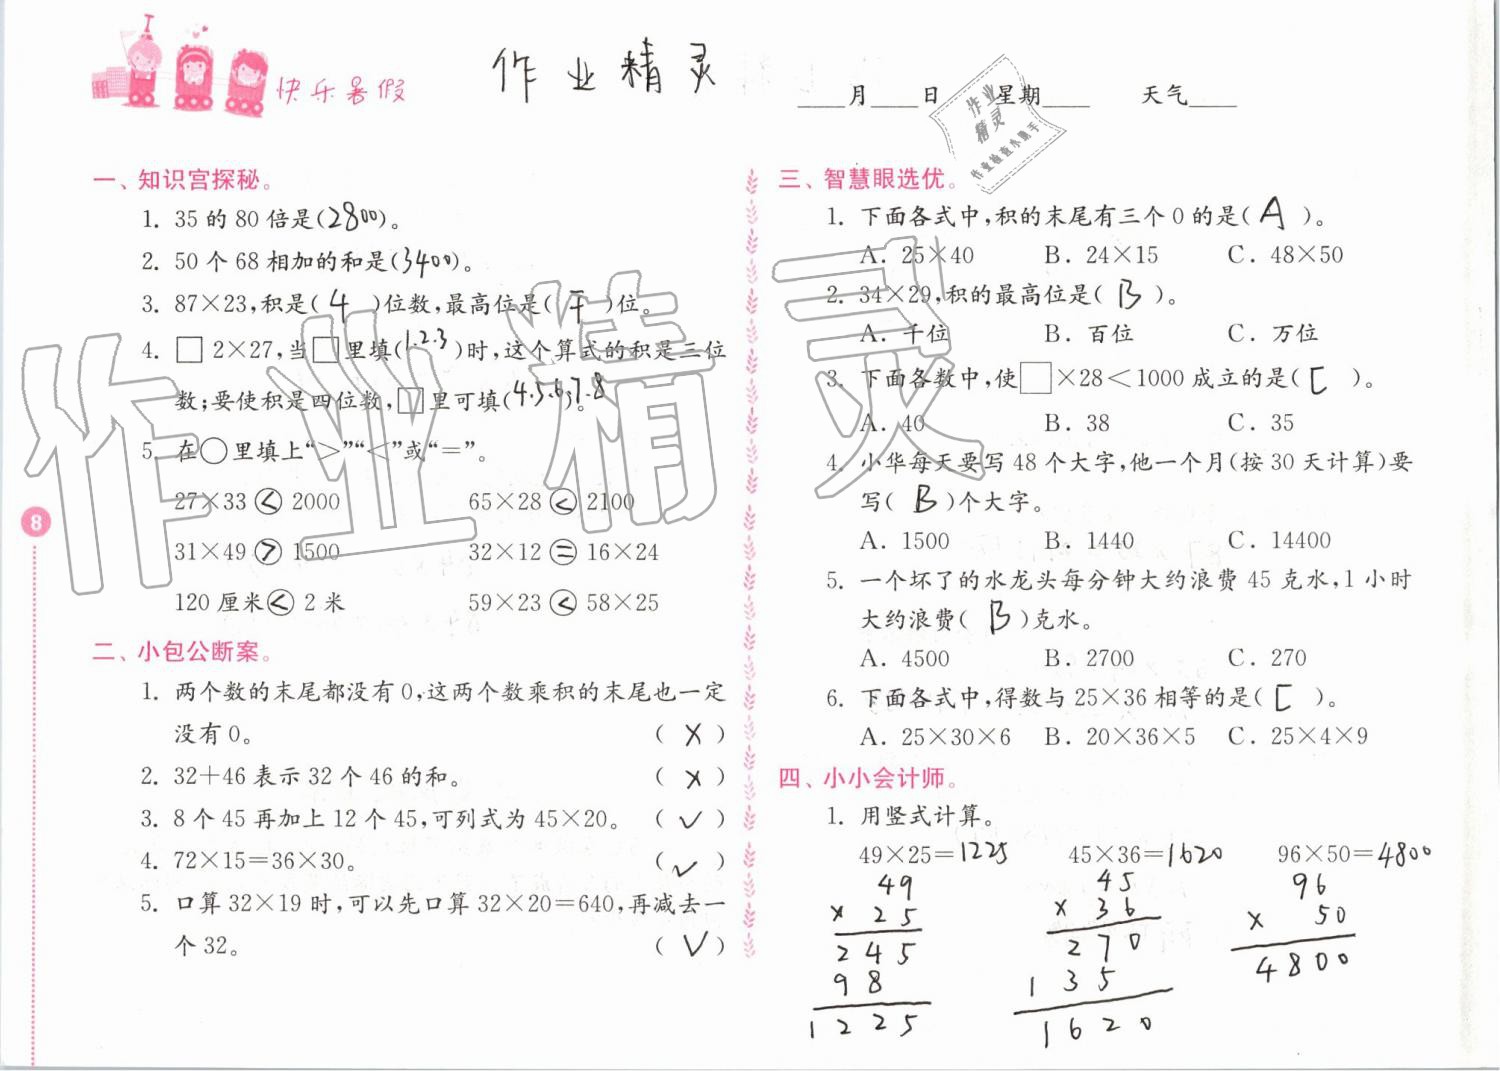 快乐暑假
作业精灵
____月____日 星期____ 天气____
作业
精灵
作业检查小助手
一、知识宫探秘。
1. 35的80倍是(2800)。
2. 50个68相加的和是(3400)。
3. 87×23,积是( 4 )位数,最高位是( 千 )位。
4. □2×27,当□里填(1.2.3)时,这个算式的积是三位
数;要使积是四位数,□里可填(4.5.6.7.8)。
5. 在○里填上“>”“<”或“=”。
27×33 < 2000 65×28 < 2100
31×49 > 1500 32×12 = 16×24
120厘米 < 2米 59×23 < 58×25
8
二、小包公断案。
1. 两个数的末尾都没有0,这两个数乘积的末尾也一定
没有0。 ( × )
2. 32+46表示32个46的和。 ( × )
3. 8个45再加上12个45,可列式为45×20。 ( √ )
4. 72×15=36×30。 ( √ )
5. 口算32×19时,可以先口算32×20=640,再减去一
个32。 ( √ )
三、智慧眼选优。
1. 下面各式中,积的末尾有三个0的是( A )。
A. 25×40 B. 24×15 C. 48×50
2. 34×29,积的最高位是( B )。
A. 千位 B. 百位 C. 万位
3. 下面各数中,使□×28<1000成立的是( C )。
A. 40 B. 38 C. 35
4. 小华每天要写48个大字,他一个月(按30天计算)要
写( B )个大字。
A. 1500 B. 1440 C. 14400
5. 一个坏了的水龙头每分钟大约浪费45克水,1小时
大约浪费( B )克水。
A. 4500 B. 2700 C. 270
6. 下面各式中,得数与25×36相等的是( C )。
A. 25×30×6 B. 20×36×5 C. 25×4×9
四、小小会计师。
1. 用竖式计算。
49×25=1225 45×36=1620 96×50=4800
49 45 96
× 25 × 36 × 50
245 270 4800
98 135
1225 1620
作业精灵